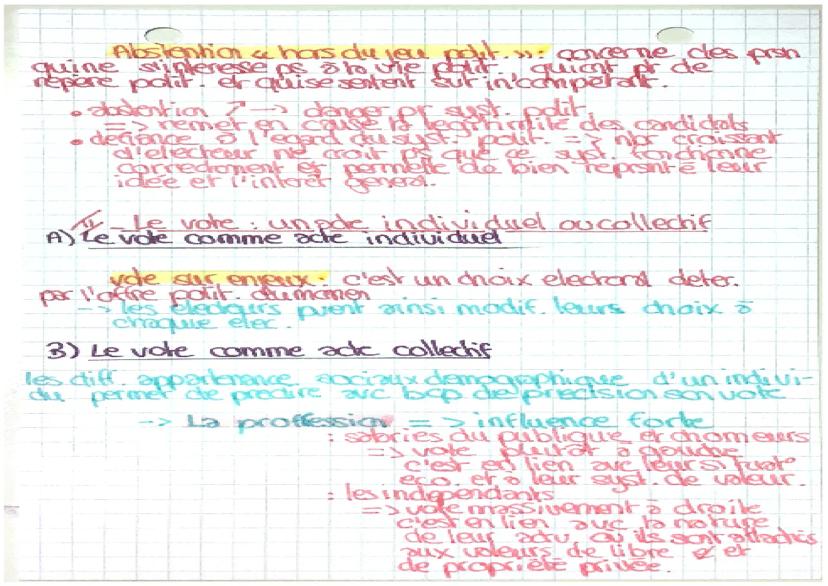 Abstention « hors du jeu polit. » : concerne des prsn
qui ne s'interesse ps à la vie polit. qui ont pt de
repère polit. et qui se sentent sur in'compétant.
• abstention ↗ --> danger pr syst. polit
=> remet en cause la légitimilité des candidats
• defiance à l'egard du syst. polit. => nbr croissant
d'electeur ne croit ps que ce syst. fonctionne
correctement et permette de bien represnté leur
idée et l'interet general.
II - Le vote : un acte individuel ou collectif
A) Le vote comme acte individuel
vote sur enjeux : c'est un choix electoral deter.
par l'offre polit. du momen
--> les electeurs pvent ainsi modif. leurs choix à
chaque elec.
B) Le vote comme acte collectif
les diff. appartenance sociaux demographique d'un indivi-
du permet de predire avc bcp de precision son vote
--> La proffession => influence forte
: salariés du publique et chomeurs
=> vote plutot à gauche
c'est en lien avc leur situat°
eco. et à leur syst. de valeur.
: les independants
=> vote massivement à droite
c'est en lien avc la nature
de leur actv. où ils sont attachés
aux valeurs de libre et
de propriété privée.